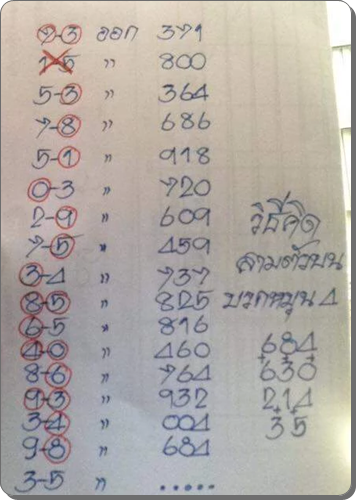 7-3 ออก 371
1-5 " 800
5-3 " 364
7-8 " 686
5-1 " 918
0-3 " 720
2-9 " 609
7-5 " 459
3-4 " 737
8-5 " 825
6-5 " 816
4-0 " 460
8-6 " 764
9-3 " 932
3-4 " 004
9-8 " 684
3-5 " .....
วิธีคิด
สามตัวบน
บวกหมุน 4
684
+ + +
630
214
+ +
35